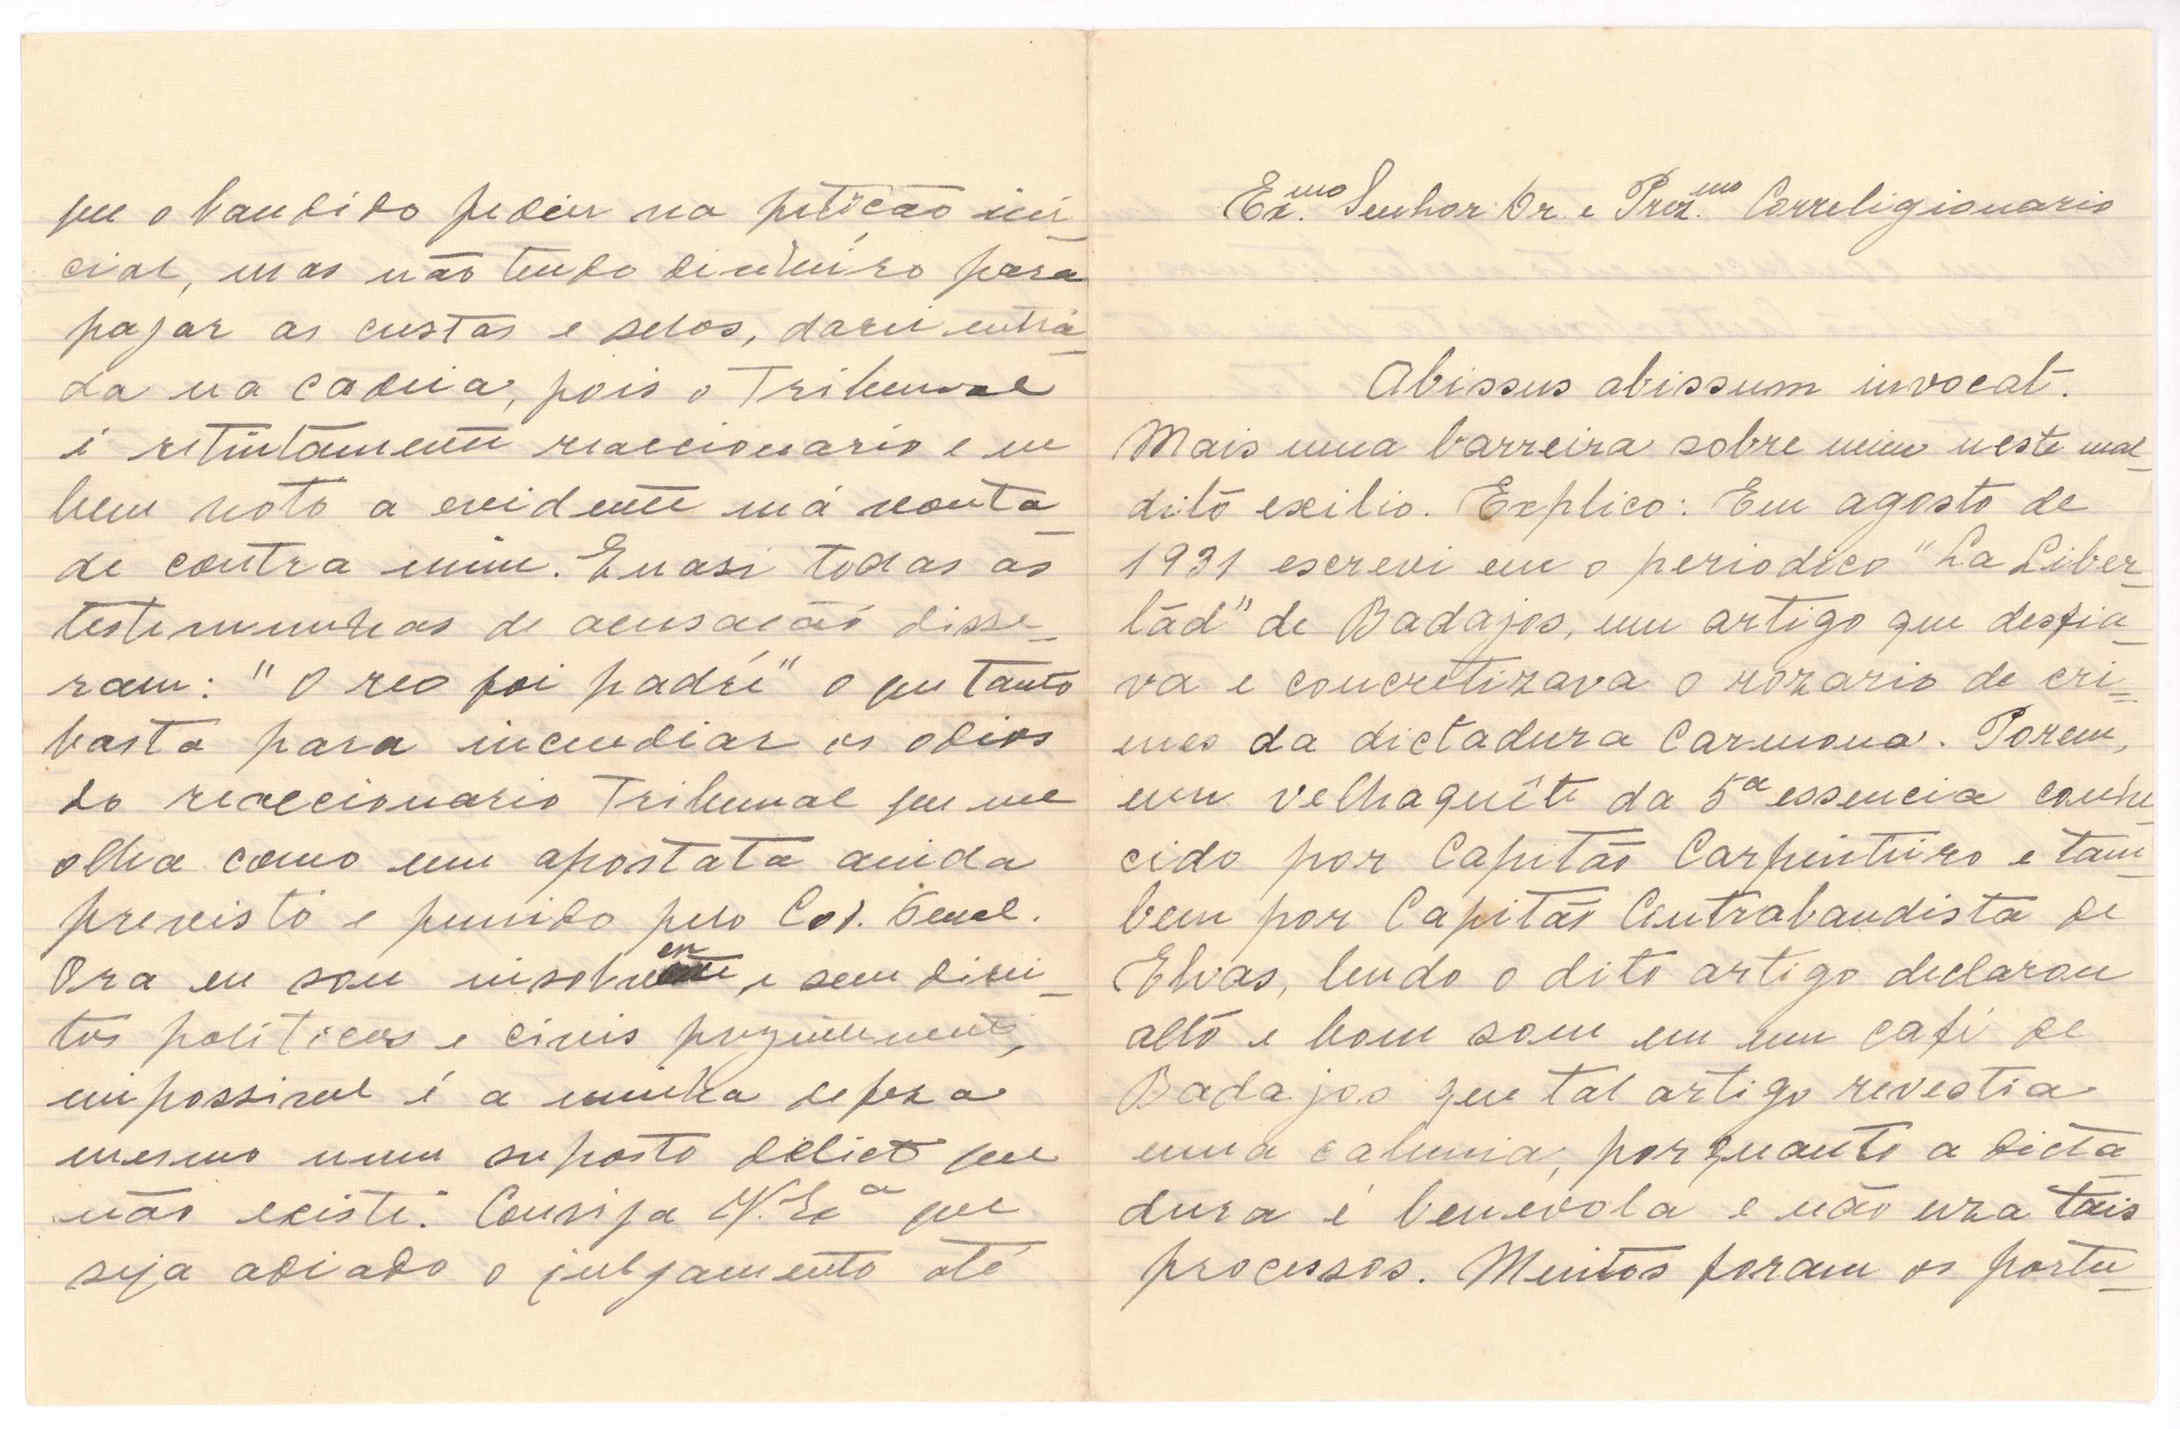 que o bandido pedeu na petição ini-
cial, mas não tendo dinheiro para
pagar as custas e selos, darei entra-
da na cadeia, pois o Tribunal
é retintamente reaccionario e eu
bem noto a evidente má vonta-
de contra mim. Quasi todas as
testemunhas de acusação disse-
ram: "O reo foi padre" o que tanto
basta para incendiar os odios
do reaccionario Tribunal que me
olha como um apostata ainda
previsto e punido pelo Cod. Penal.
Ora eu sou insolvente, e sem direi-
tos politicos e civis
impossivel é a minha defeza
mesmo num suposto delicto que
não existe. Consiga V. Exª que
seja adiado o julgamento até
Ex.mo Senhor Dr. e Prez.mo Correligionario
Abissus abissum invocat.
Mais uma barreira sobre mim neste mal-
dito exilio. Explico: Em agosto de
1931 escrevi em o periodico "La Liber-
tád" de Badajos, um artigo que desfia-
va e concretizava o rozario de cri-
mes da dictadura Carmona. Porem,
um velhaquête da 5ª essencia conhe-
cido por Capitão Carpinteiro e tam-
bem por Capitão Contrabandista de
Elvas, lendo o dito artigo declarou
alto e bom som em um café de
Badajos que tal artigo revestia
uma calumia, porquanto a dicta-
dura é benévola e não uza tais
processos. Muitos foram os portu-